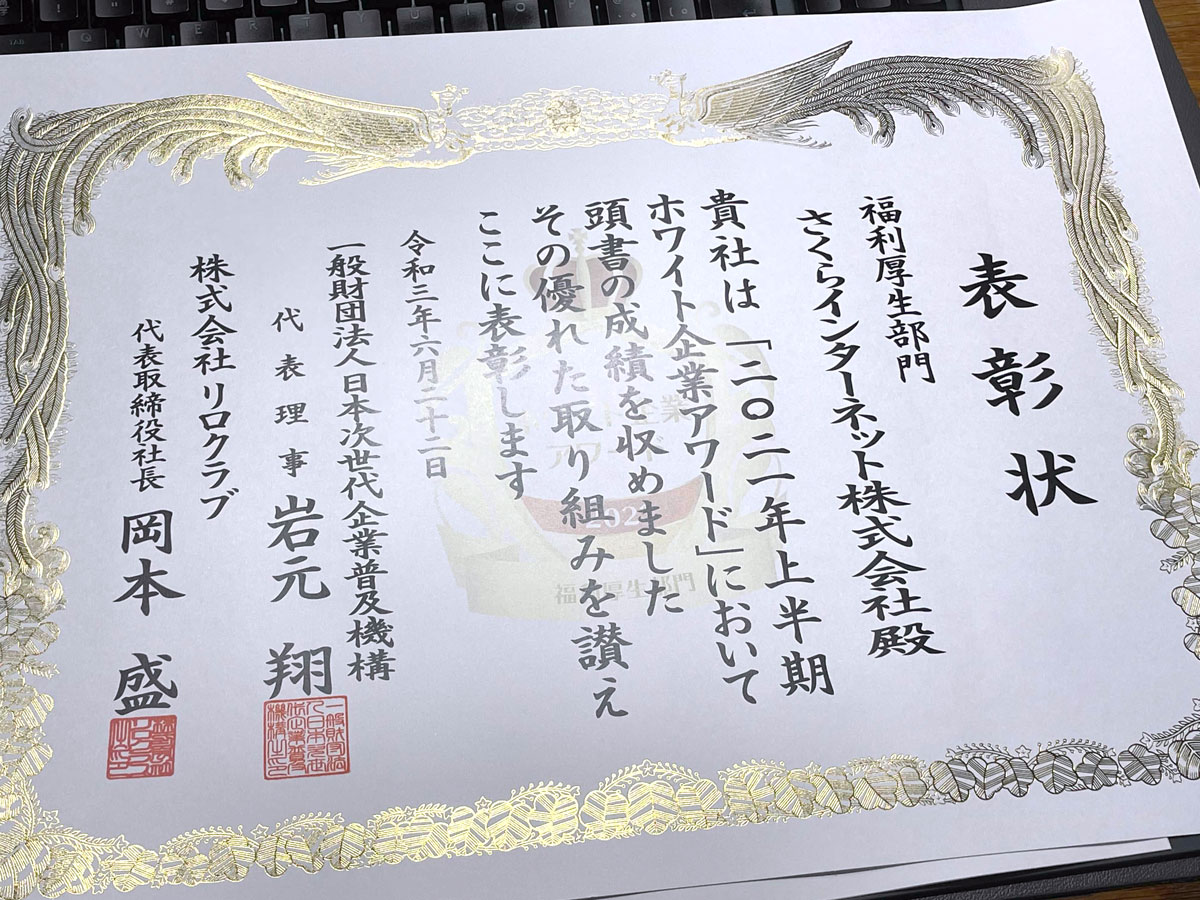 表彰状
福利厚生部門
さくらインターネット株式会社殿
貴社は「二〇二一年上半期
ホワイト企業アワード」において
頭書の成績を収めました
その優れた取り組みを讃え
ここに表彰します
令和三年六月二十二日
一般財団法人日本次世代企業普及機構
代表理事 岩元 翔
株式会社 リロクラブ
代表取締役社長 岡本 盛
企業
アワード
202
福利厚生部門